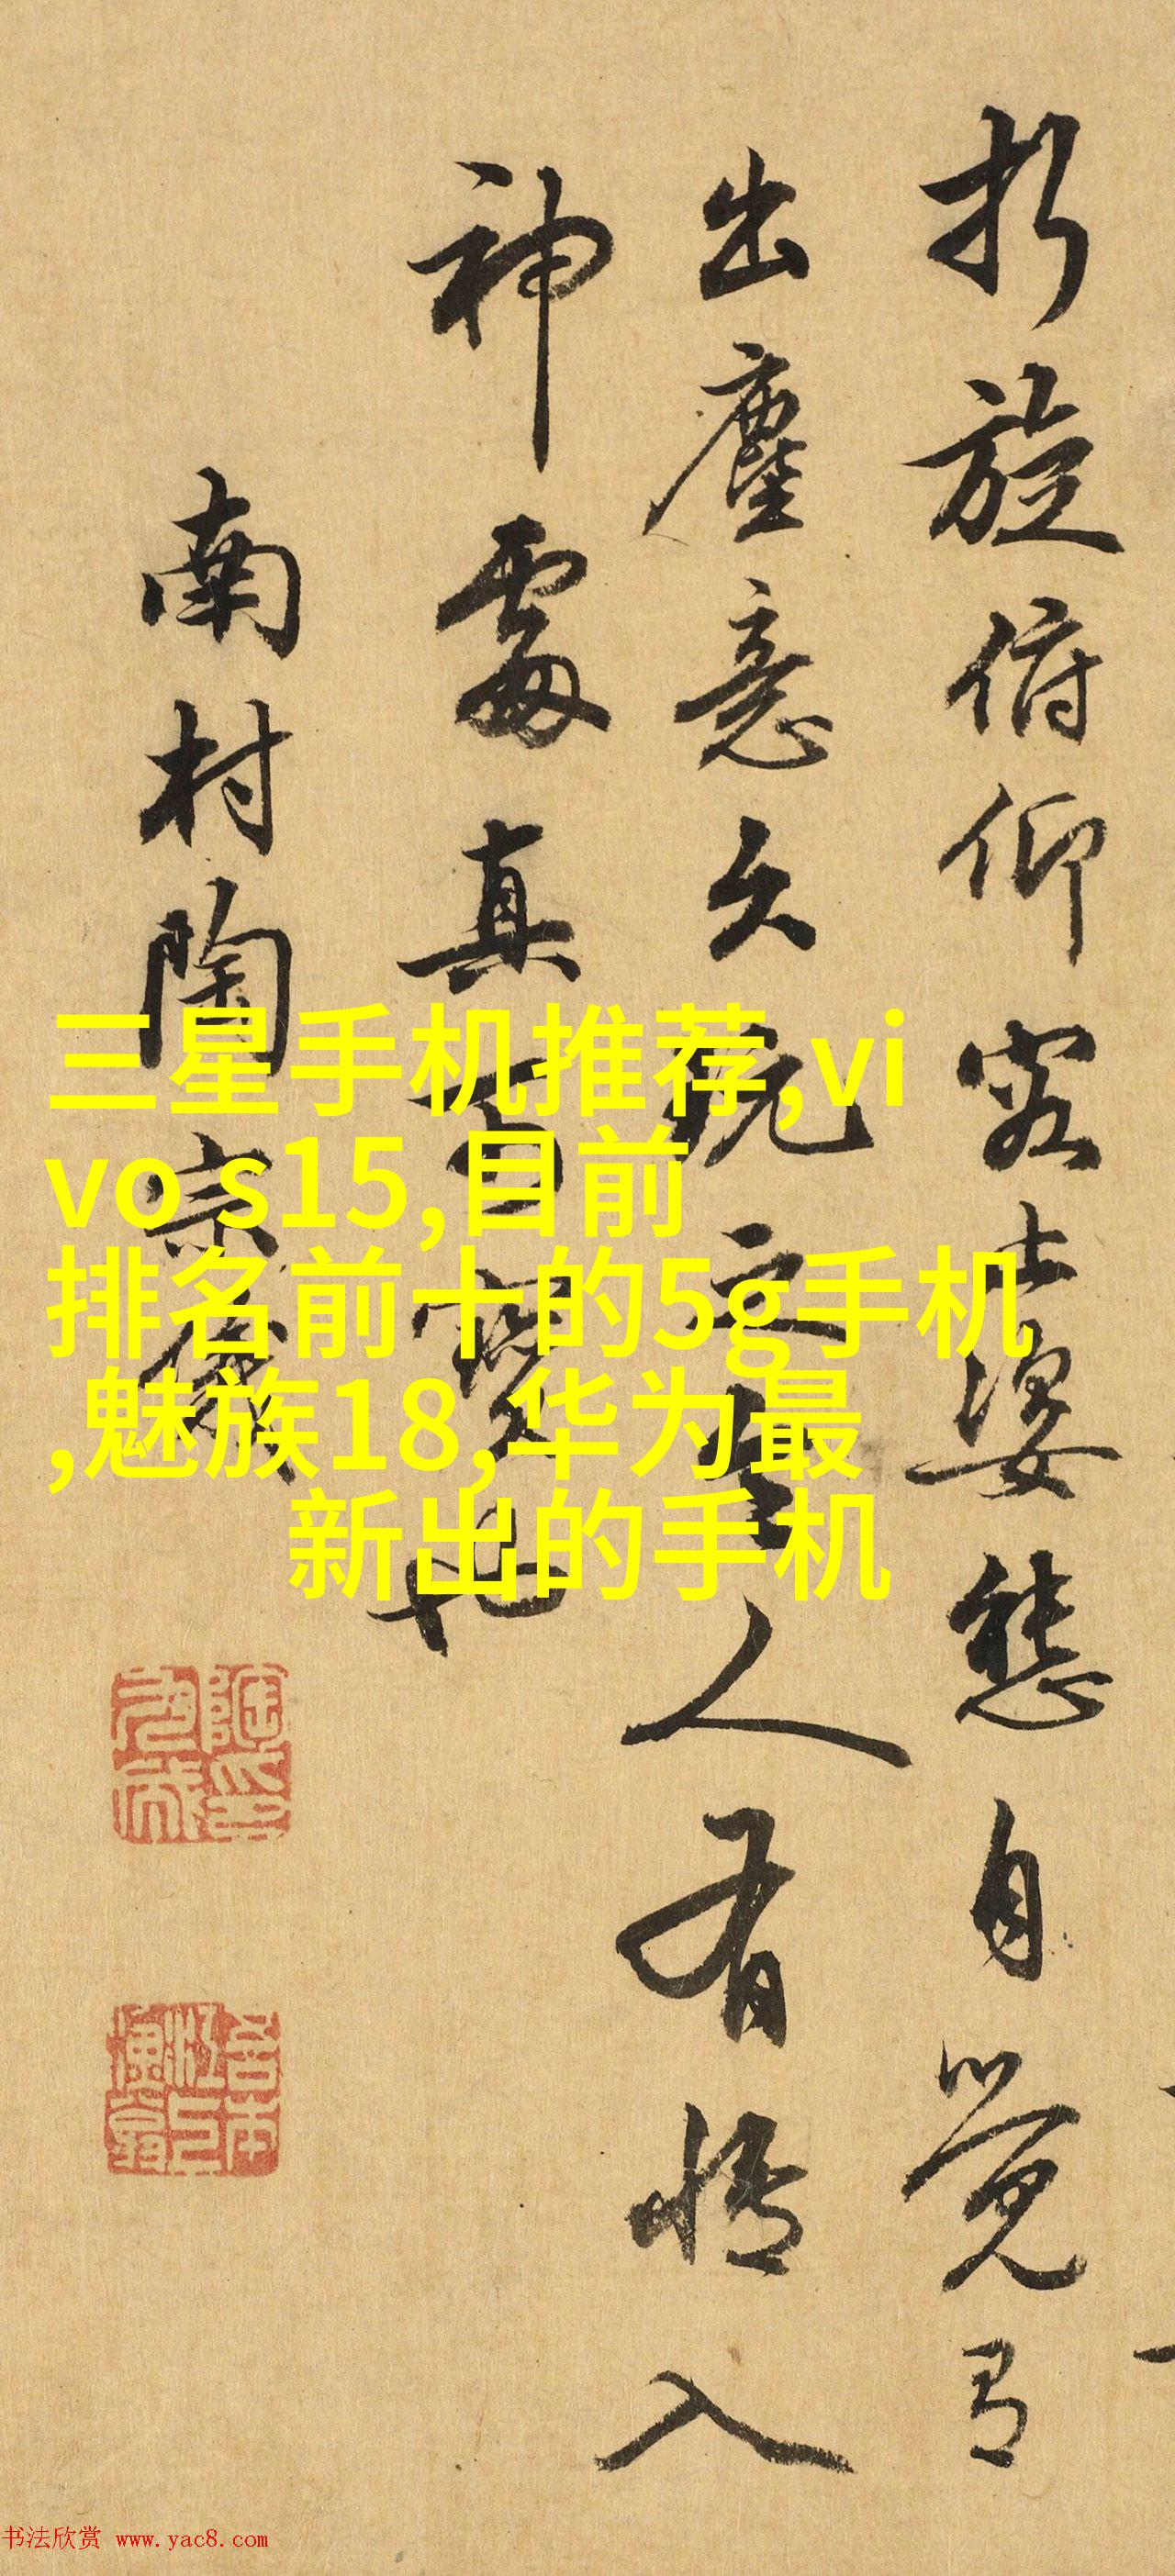 折旋俯仰容止姿態自覺有
出塵意久玩之令人有情入
神處真可寶也
南村陶宗儀
三星手机推荐,vi
vo s15,目前
排名前十的5g手机
,魅族18,华为最
新出的手机
书法欣赏 www.yac8.com